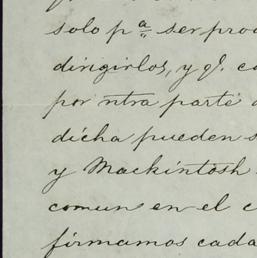 solo pª ser pro
dirigirlos, y qᵉ. c
por ntra parte
dicha pueden s
y Mackintosh
comun en el c
firmamos cada